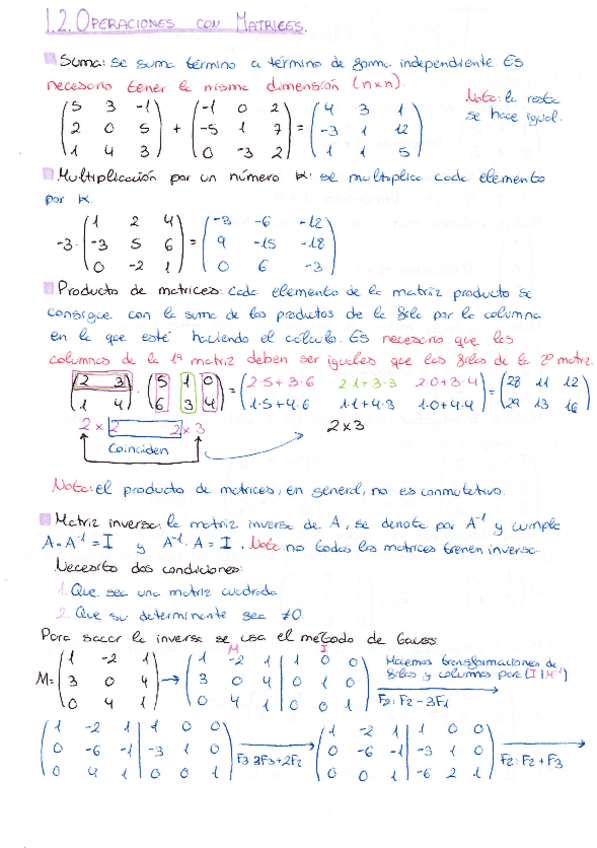 1.2. OPERACIONES CON MATRICES.
Suma: se suma término a término de forma independiente. Es
necesario tener la misma dimensión (n×n).
Nota: la resta
se hace igual.
(5 3 -1) (-1 0 2) (4 3 1)
(2 0 5) + (-5 1 7) = (-3 1 12)
(1 4 3) (0 -3 2) (1 1 5)
Multiplicación por un número K: se multiplica cada elemento
por K.
(1 2 4) (-3 -6 -12)
-3· (-3 5 6) = (9 -15 -18)
(0 -2 1) (0 6 -3)
Producto de matrices: Cada elemento de la matriz producto se
consigue con la suma de los productos de la fila por la columna
en la que esté haciendo el cálculo. Es necesario que las
columnas de la 1ª matriz deben ser iguales que las filas de la 2ª matriz.
(2 3) · (5 1 0) = (2·5+3·6 2·1+3·3 2·0+3·4) = (28 11 12)
(1 4) (6 3 4) (1·5+4·6 1·1+4·3 1·0+4·4) (29 13 16)
2×2 2×3 2×3
Coinciden
Nota: el producto de matrices, en general, no es conmutativo.
Matriz inversa: la matriz inversa de A, se denota por A⁻¹ y cumple
A·A⁻¹ = I y A⁻¹·A = I. Nota: no todas las matrices tienen inversa.
Necesito dos condiciones:
1. Que sea una matriz cuadrada
2. Que su determinante sea ≠0.
Para sacar la inversa se usa el método de Gauss
M I
(1 -2 1) (1 -2 1 | 1 0 0) Hacemos transformaciones de
M= (3 0 4) → (3 0 4 | 0 1 0) filas y columnas para (I|M⁻¹)
(0 4 1) (0 4 1 | 0 0 1) F2: F2 - 3F1
(1 -2 1 | 1 0 0) (1 -2 1 | 1 0 0)
(0 -6 -1 | -3 1 0) F3: 3F3+2F2 (0 -6 -1 | -3 1 0) F2: F2+F3
(0 4 1 | 0 0 1) (0 0 1 | -6 2 1)